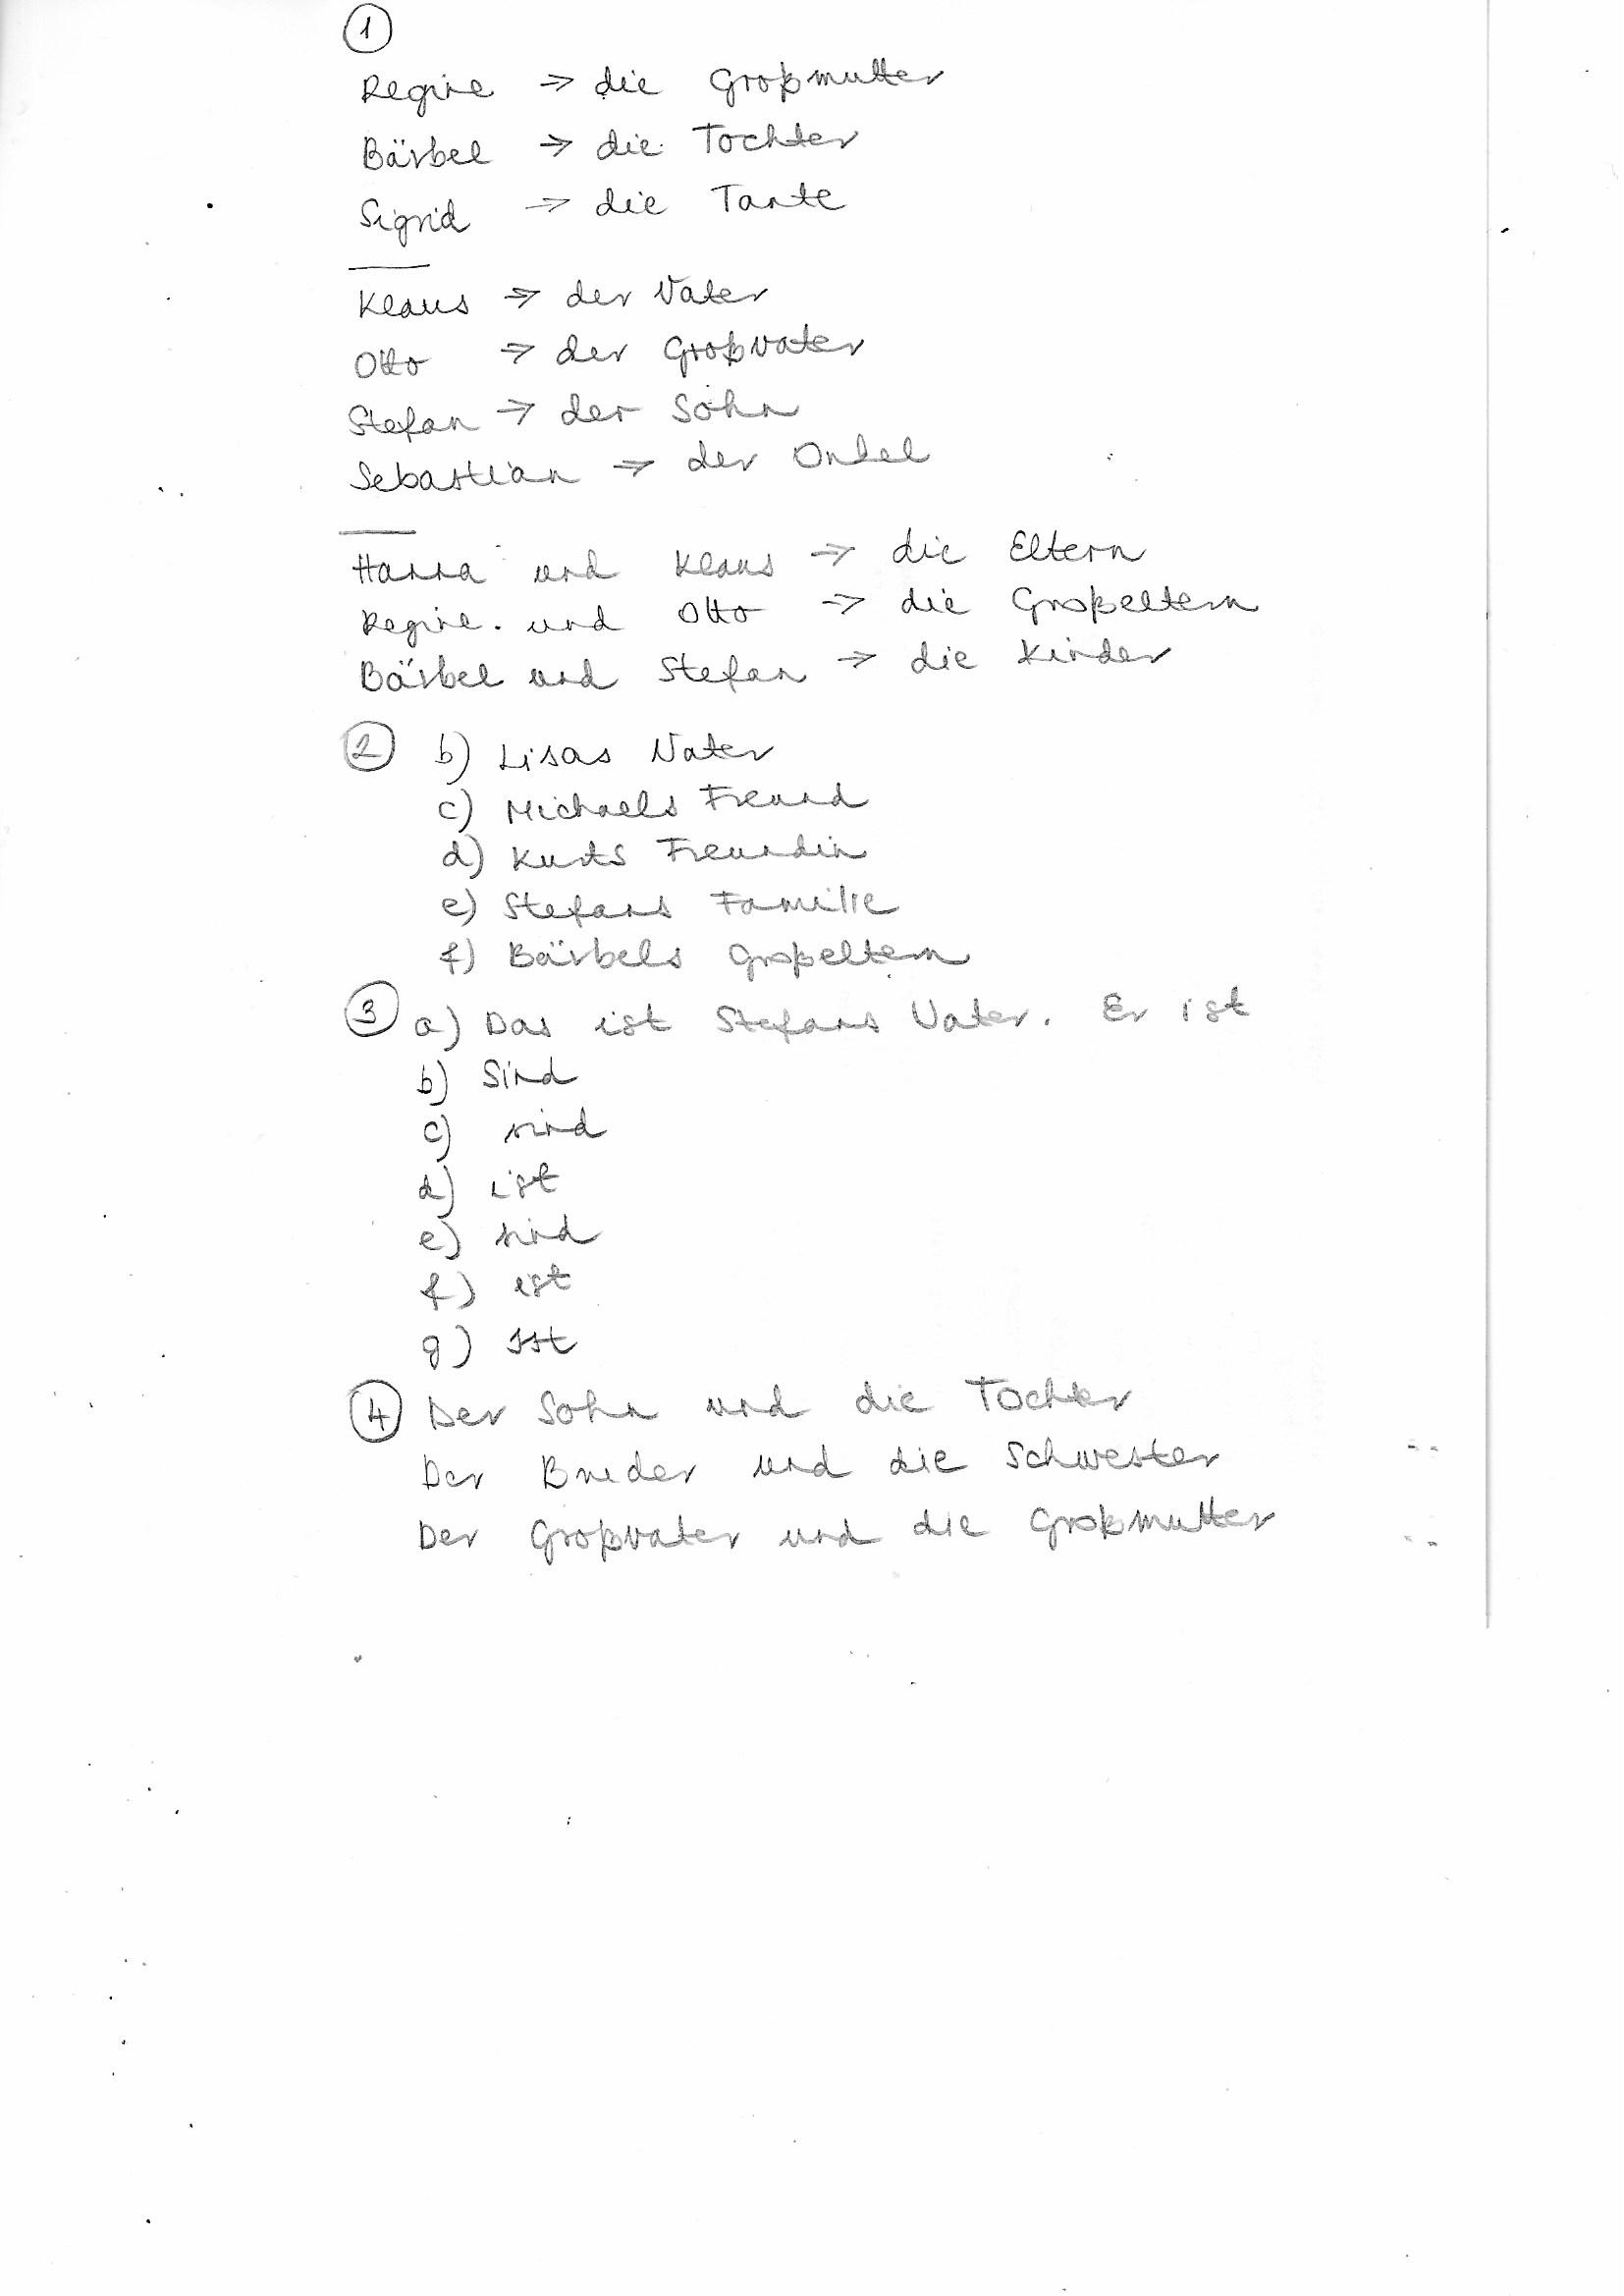 1
Regine → die Großmutter
Bärbel → die Tochter
Sigrid → die Tante
Klaus → der Vater
Otto → der Großvater
Stefan → der Sohn
Sebastian → der Onkel
Hanna und Klaus → die Eltern
Regine und Otto → die Großeltern
Bärbel und Stefan → die Kinder
2 b) Lisas Vater
c) Michaels Freund
d) Kurts Freundin
e) Stefans Familie
f) Bärbels Großeltern
3 a) Das ist Stefans Vater. Er ist
b) Sind
c) sind
d) ist
e) sind
f) ist
g) Ist
4 Der Sohn und die Tochter
Der Bruder und die Schwester
Der Großvater und die Großmutter